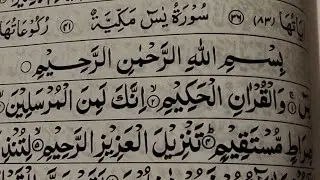 اٰيَاتُهَا (٨٣) ٣٦ سُوْرَةُ يٰسٓ مَكِّيَّةٌ ٤١ رُكُوْعَاتُهَا
بِسْمِ اللهِ الرَّحْمٰنِ الرَّحِيْمِ
يٰسٓ وَالْقُرْاٰنِ الْحَكِيْمِ اِنَّكَ لَمِنَ الْمُرْسَلِيْنَ
صِرَاطٍ مُّسْتَقِيْمٍ تَنْزِيْلَ الْعَزِيْزِ الرَّحِيْمِ لِتُنْذِ